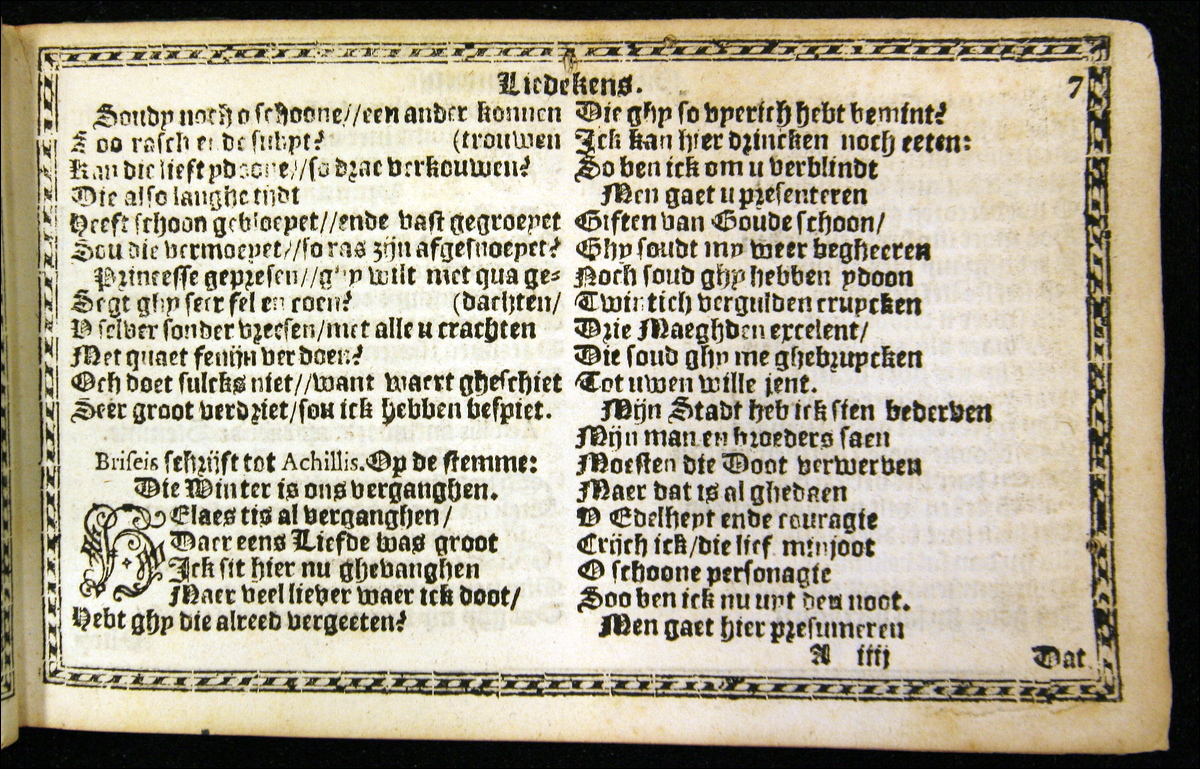 Liedekens.
7
Soudy noch o schoone//een ander konnen
Zoo rasch en desubyt? (trouwen
Kan die lieft ydoone//so drae verkouwen?
Die also langhe tijdt
Heeft schoon gebloeyet//ende vast gegroeyet
Sou die vermoeyet//so ras zijn afgesnoeyet?
Princesse gepresen//ghy wilt met qua ge=
Segt ghy seer fel en coen? (dachten/
U selver sonder vreesen/met alle u crachten
Met quaet fenijn ver doen?
Och doet sulcks niet//want waert gheschiet
Seer groot verdriet/sou ick hebben bespiet.
Briseis schrijft tot Achillis. Op de stemme:
Die Winter is ons verganghen.
HElaes tis al verganghen/
Daer eens Liefde was groot
Ick sit hier nu ghevanghen
Maer veel liever waer ick doot/
Hebt ghy die alreed vergeeten?
Die ghy so vyerich hebt bemint?
Ick kan hier drincken noch eeten:
So ben ick om u verblindt
Men gaet u presenteren
Giften van Goude schoon/
Ghy soudt my weer begheeren
Noch soud ghy hebben ydoon
Twintich vergulden cruycken
Drie Maeghden excelent/
Die soud ghy me ghebruycken
Tot uwen wille jent.
Mijn Stadt heb ick sien bederven
Mijn man en broeders saen
Moesten die Doot verwerven
Maer dat is al ghedaen
U Edelheyt ende couragie
Crijch ick/die lief minjoot
O schoone personagie
Soo ben ick nu uyt den noot.
Men gaet hier presumeren
A iiij
Dat